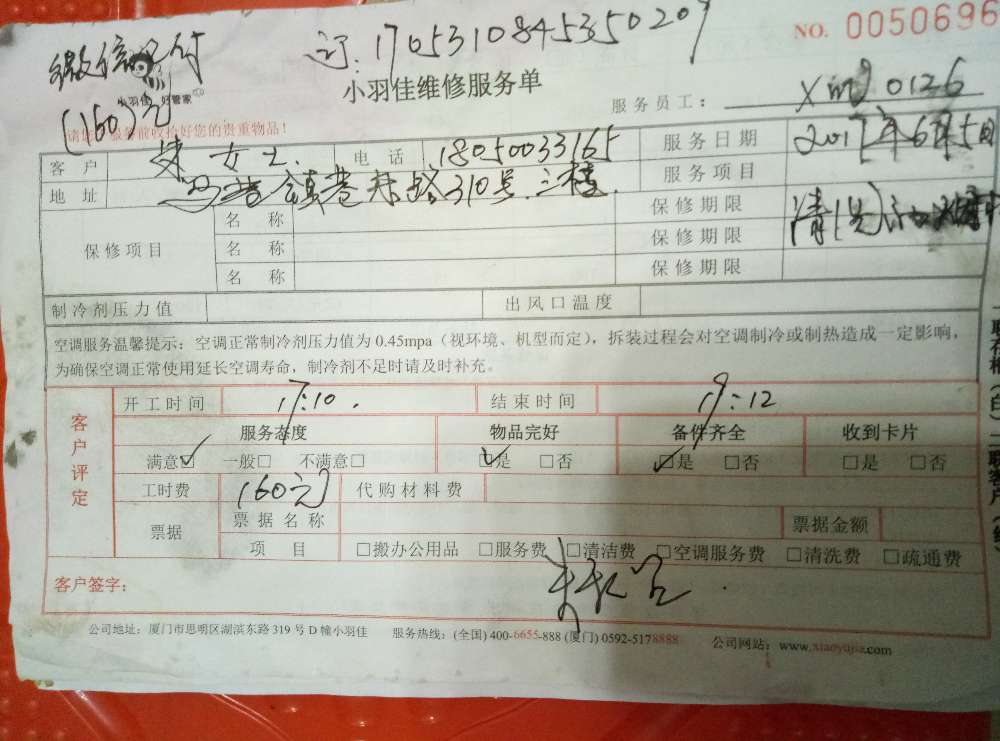 微信已付
(160)元
订:1705310845350209
NO. 0050696
小羽佳 好管家
小羽佳维修服务单
服务员工: Xm 0126
服务前收拾好您的贵重物品!
客户 女士.
电话 18050033165
服务日期 2017年6月5日
地址 镇巷 路310号三楼.
服务项目
保修项目
名称
保修期限 清洗
名称
保修期限
名称
保修期限
制冷剂压力值
出风口温度
空调服务温馨提示:空调正常制冷剂压力值为 0.45mpa(视环境、机型而定),拆装过程会对空调制冷或制热造成一定影响,
为确保空调正常使用延长空调寿命,制冷剂不足时请及时补充。
客户评定
开工时间 17:10.
结束时间 19:12
服务态度 物品完好 备件齐全 收到卡片
满意☑ 一般□ 不满意□ ☑是 □否 ☑是 □否 □是 □否
工时费 160元
代购材料费
票据
票据名称
票据金额
项目 □搬办公用品 □服务费 □清洁费 □空调服务费 □清洗费 □疏通费
客户签字:
公司地址:厦门市思明区湖滨东路 319 号 D 幢小羽佳 服务热线:(全国) 400-6655-888 (厦门) 0592-5178888 公司网站:www.xiaoyujia.com